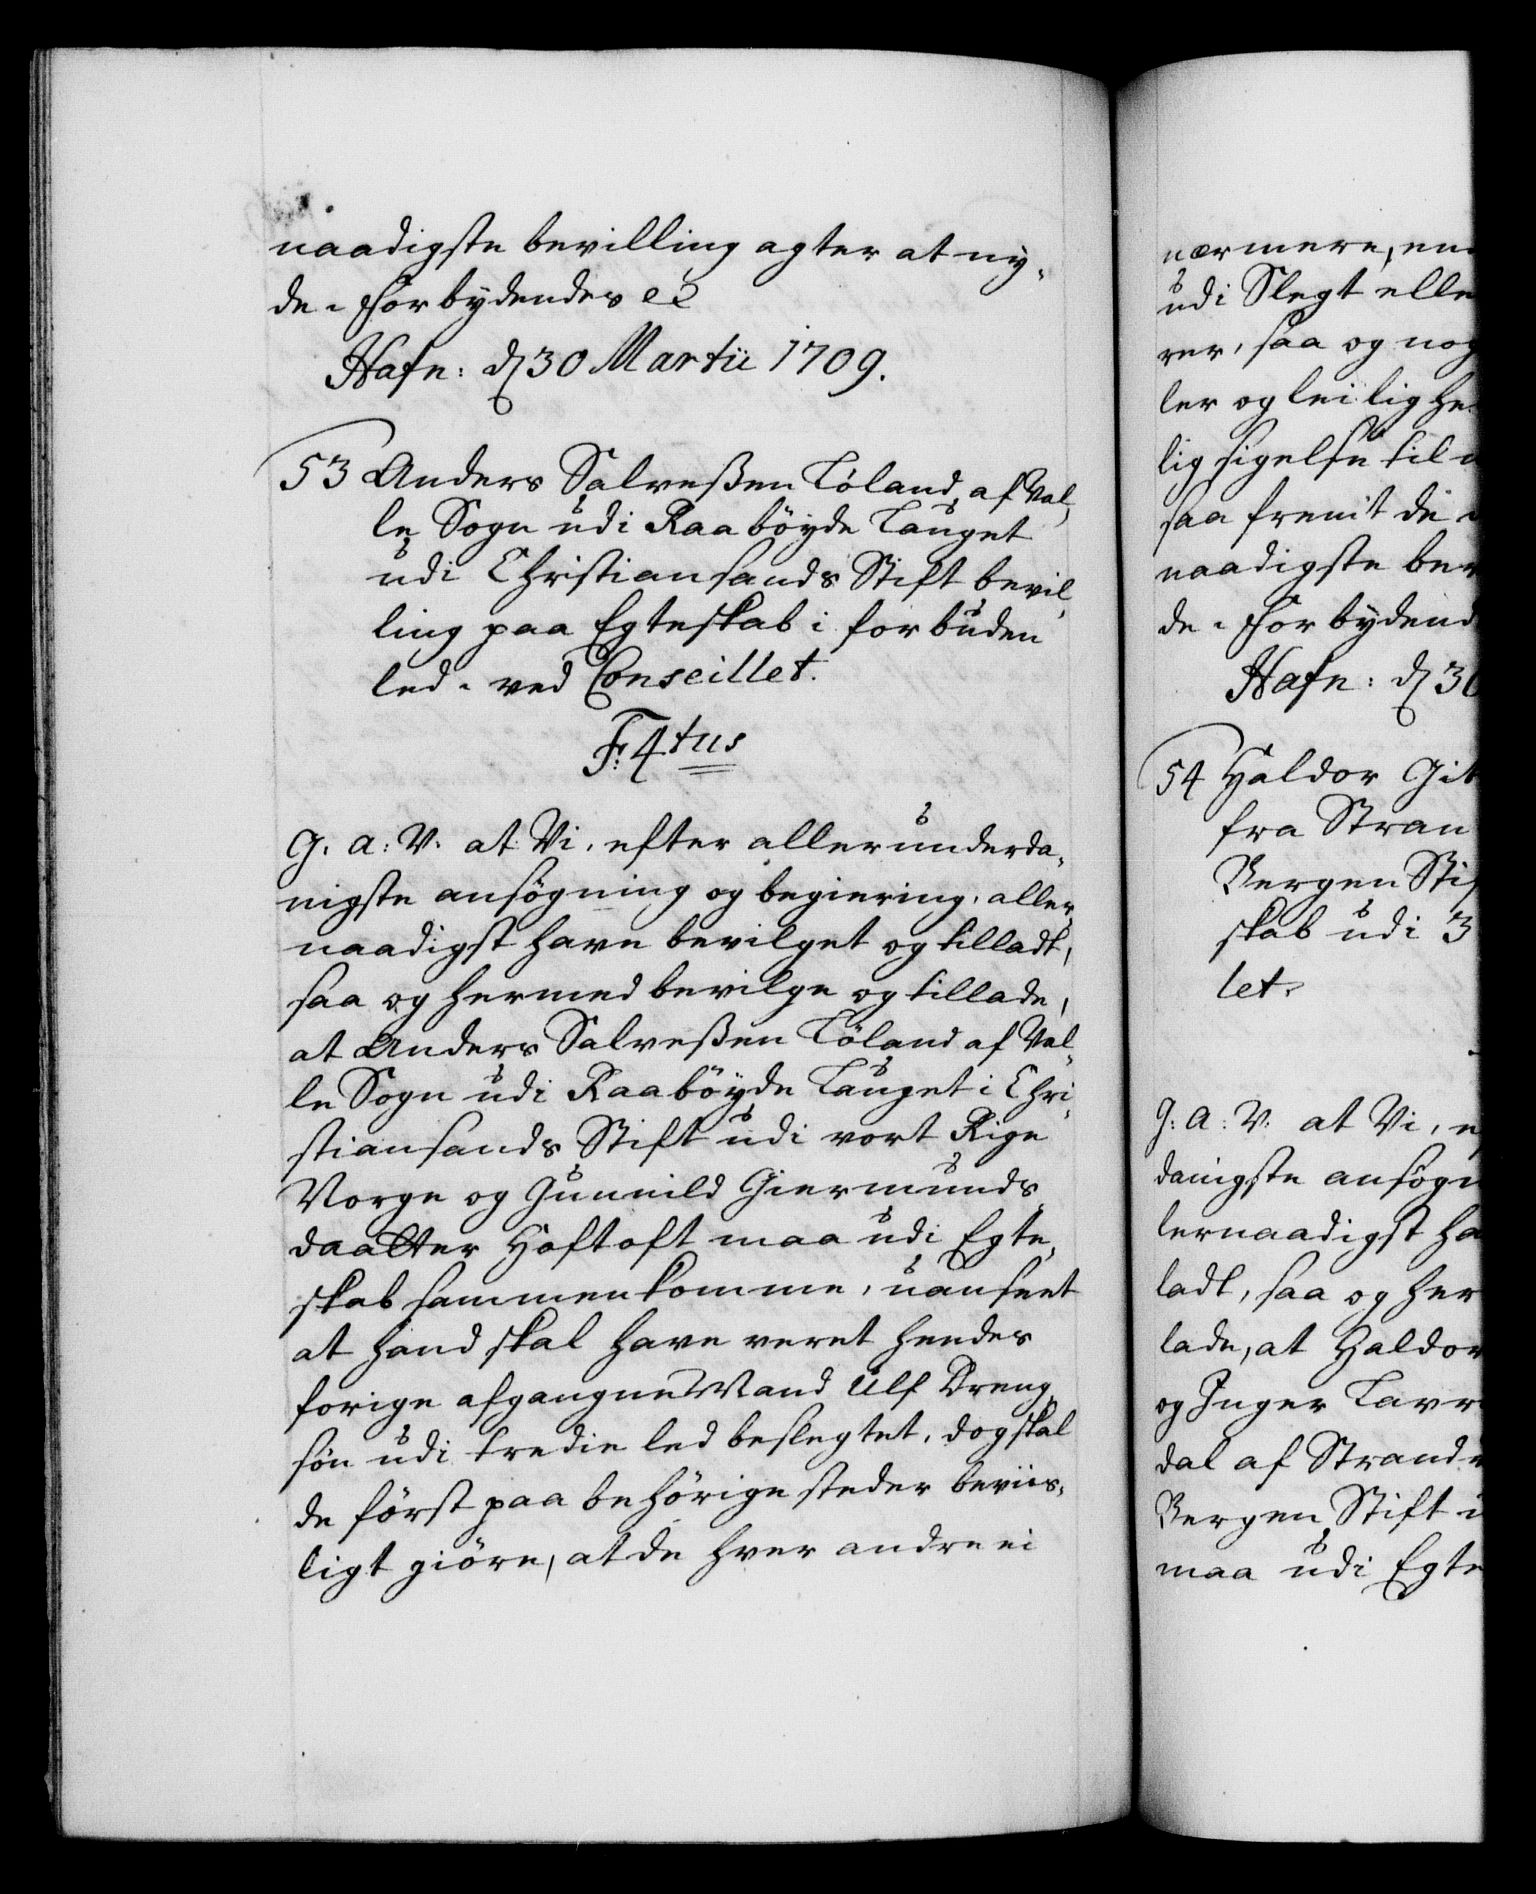 naadigste bevilling agter at ny-
de. Forbydendes ec
Hafn: d 30 Martii 1709.
53 Anders Salveßen Töland, af Val-
le Sogn udi Raaböyde Lauget
udi Christiansands Stift bevil-
ling paa Egteskab i forbuden
led. ved Conseillet.
F: 4tus
G. A: V. at Vi, efter allerunderda-
nigste ansögning og begiering, aller-
naadigst have bevilget og tilladt,
saa og hermed bevilge og tillade,
at Anders Salveßen Töland af Val-
le Sogn udi Raaböyde Lauget i Chri-
stiansands Stift udi vort Rige
Norge og Gunnild Giermunds
daatter Hoftoft maa udi Egte-
skab sammenkomme, uanseet
at hand skal have veret hendes
forige afgangne Mand Ulf Dreng-
søn udi tredie led beslegtet, dog skal
de först paa behörige steder beviis-
ligt giöre, at de hver andre ei
nærmere, en
udi Slegt elle
rer, saa og nog
ler og leilighe
lig sigelse til
saa fremt de
naadigste bev
de. Forbydend
Hafn: d 30
54 Haldor Git
fra Stran
Bergen Stif
skab udi 3
let.
G: A: V. at Vi, e
danigste ansögn
lernaadigst ha
ladt, saa og her
lade, at Haldor
og Inger Lavr
dal af Strand
Bergen Stift i
maa udi Egte